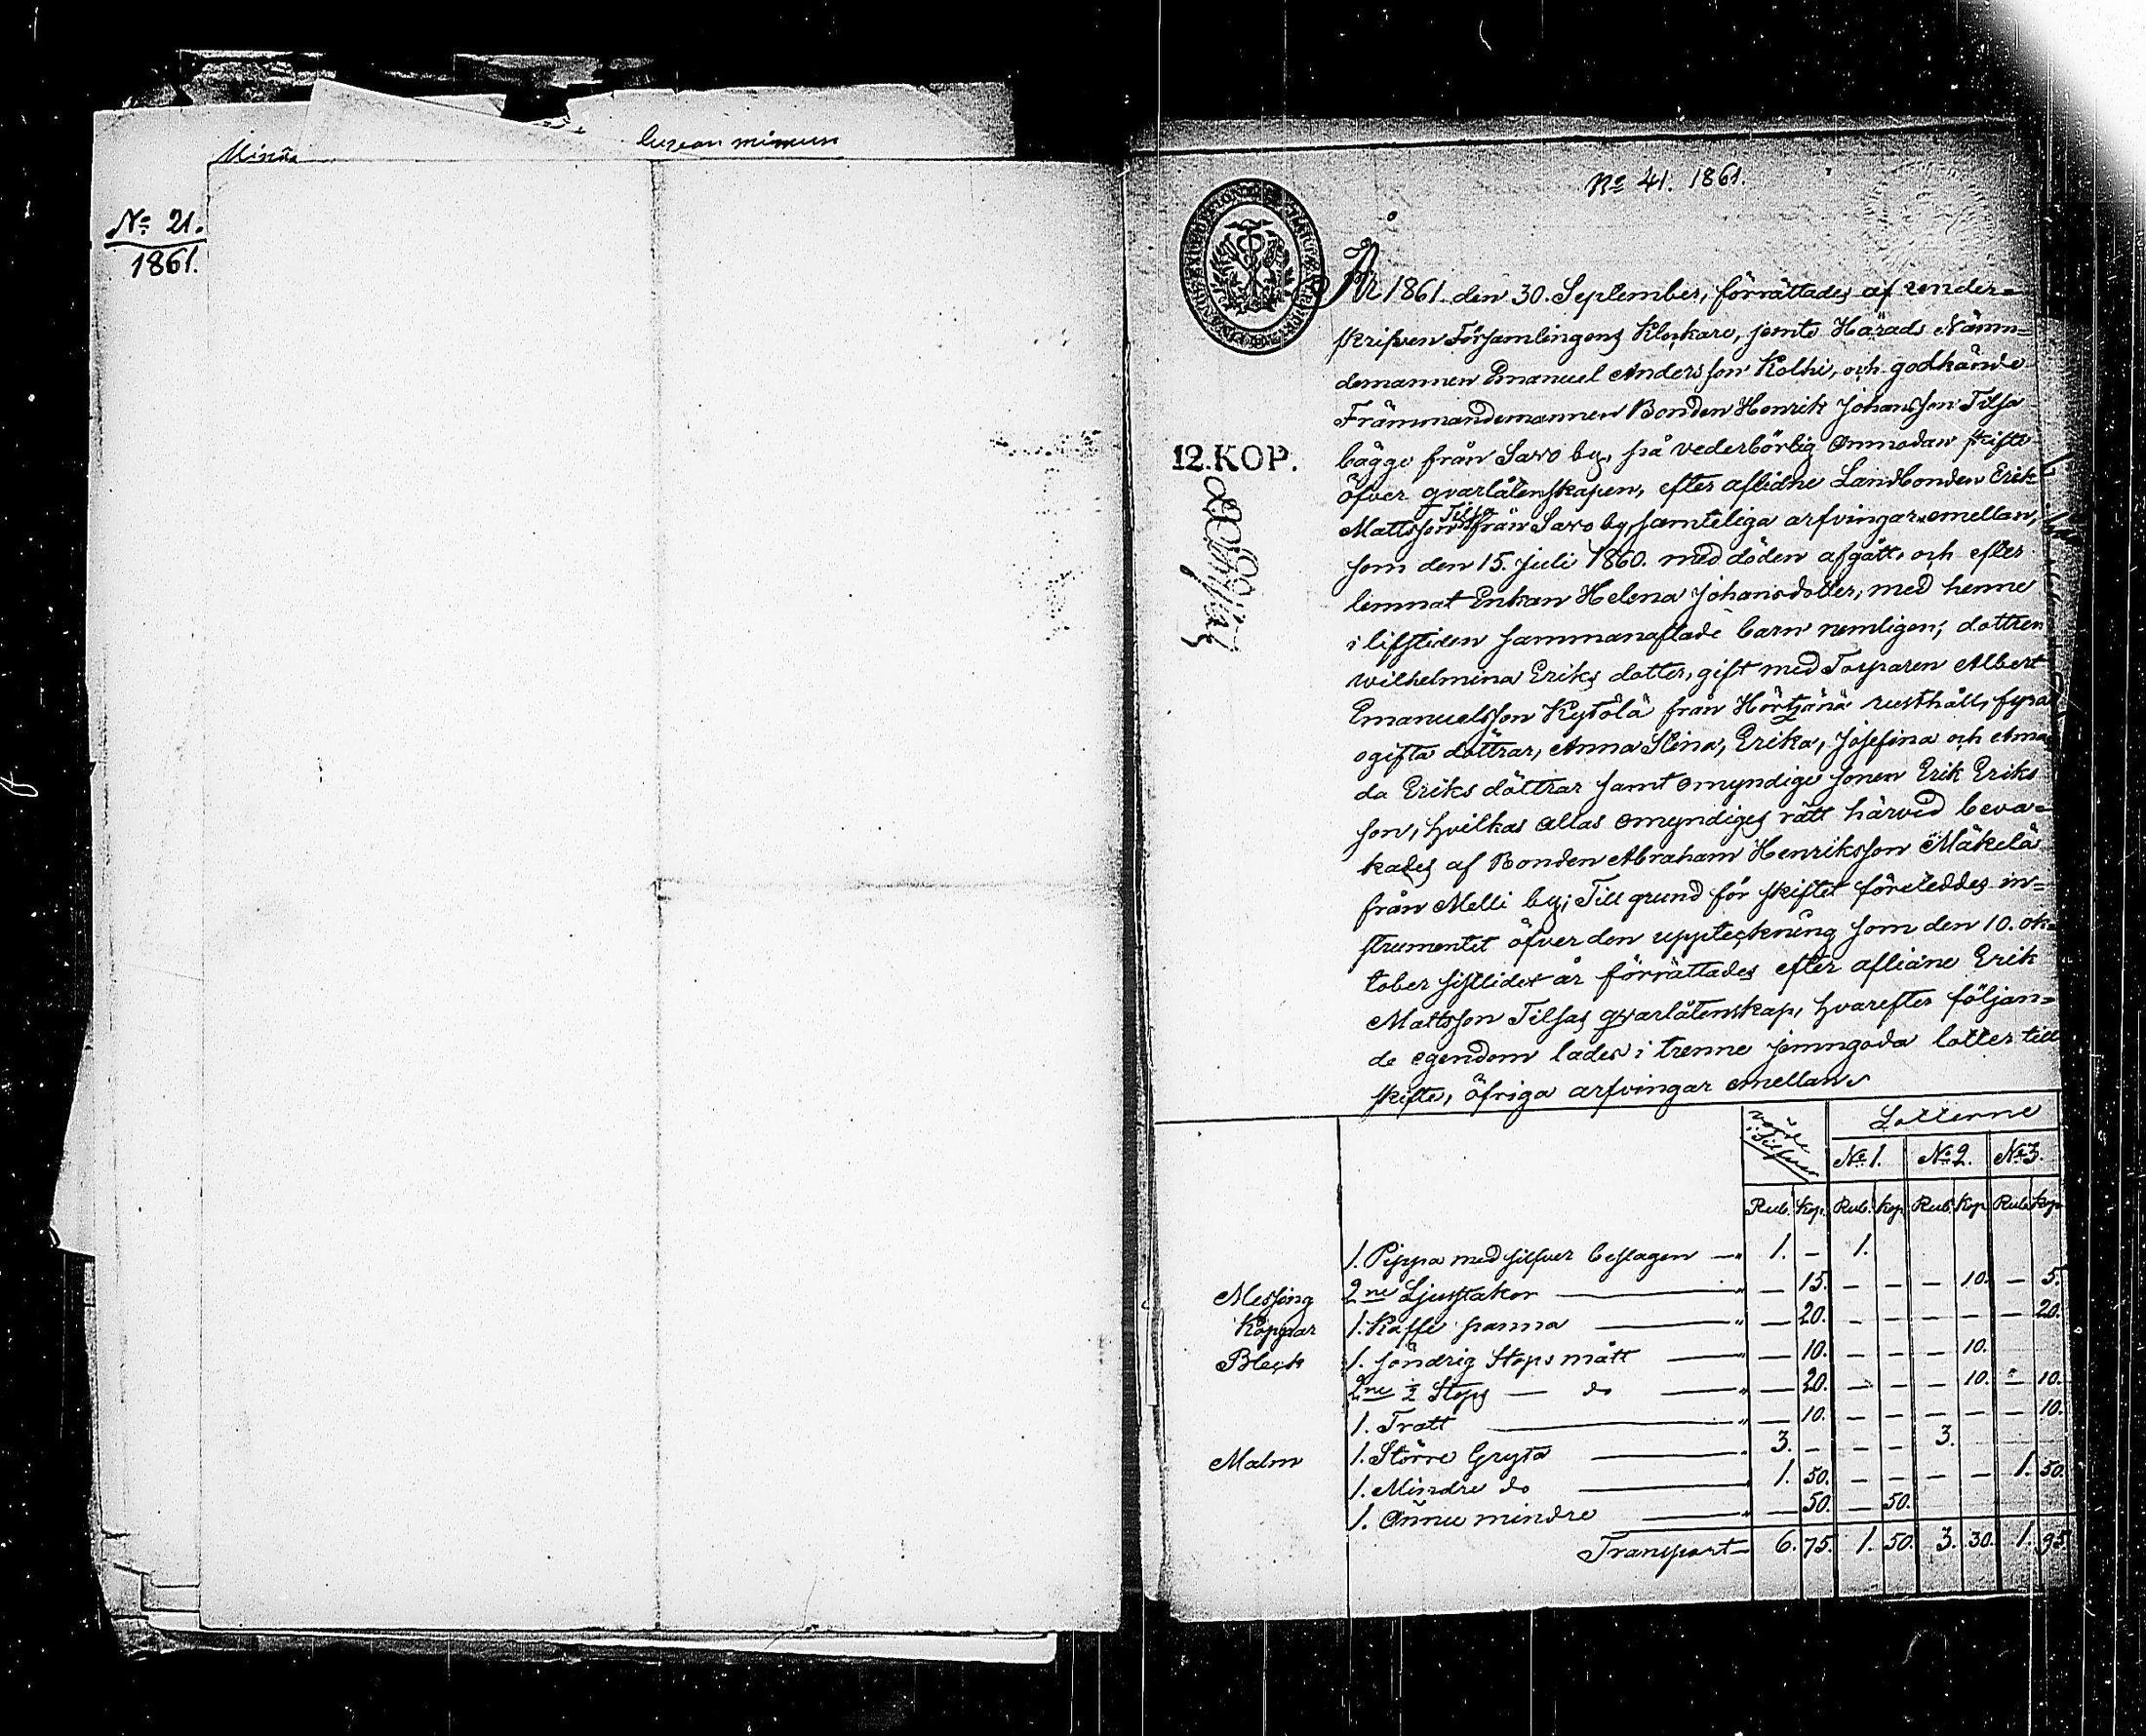 Minä
luvan minun
No 21.
1861.
No 41. 1861.
12.KOP.
År 1861 den 30. September, förrättades af under=
skrifven Församlingens Klockare, jemte Härads Nämn=
demannen Emanuel Andersson Kolhi, och godkände
Främmandemannen Bonden Henrik Johansson Tilsa
bägge från Sawo by, på vederbörlig anmodan skifte
öfver qvarlåtenskapen, efter aflidne Landbonden Erik
Mattsson Tilsa från Sawo by, samteliga arfvingar emellan,
som den 15. Juli 1860. med döden afgått, och efter
lemnat Enkan Helena Johansdotter, med henne
i lifstiden sammanaflade barn nemligen; dottren
Wilhelmina Eriks dotter, gift med Torparen Albert
Emanuelsson Kytölä från Hörtjänä rusthåll, fyra
ogifta döttrar, Anna Stina, Erika, Josefina och Aman
da Eriks döttrar samt omyndige sonen Erik Eriks
son, hvilkas allas omyndiges rätt härvid beva=
kades af Bonden Abraham Henriksson Mäkelä
från Melli by; Till grund för skiftet föreleddes in=
strumentet öfver den uppteckning som den 10. Ok=
tober sistlidet år förrättades efter aflidne Erik
Mattsson Tilsas qvarlåtenskap, hvarefter följan=
de egendom lades i trenne jemngoda lotter till
skifte, öfriga arfvingar emellan
Lotterne
No 1. No 2. No 3.
Rub. Kop. Rub. Kop Rub. Kop Rub. Kop
1. Pippa med silfver beslagen — " 1. — 1.
Messing 2ne Ljusstakor — " — 15. — — — 10. — 5.
Koppar 1. Kaffe panna — " — 20. — — — — — 20.
Bleck 1. söndrig Stops mått — " — 10. — — — 10.
2ne ½ Stops — do — " — 20. — — — 10. — 10.
1. Tratt — " — 10. — — — — — 10.
Malm 1. Större Gryta — " 3. — — — 3.
1. Mindre do — " 1. 50. — — — — 1. 50.
1. Ännu mindre — " — 50. — 50.
Transport — 6. 75. 1. 50. 3. 30. 1. 95